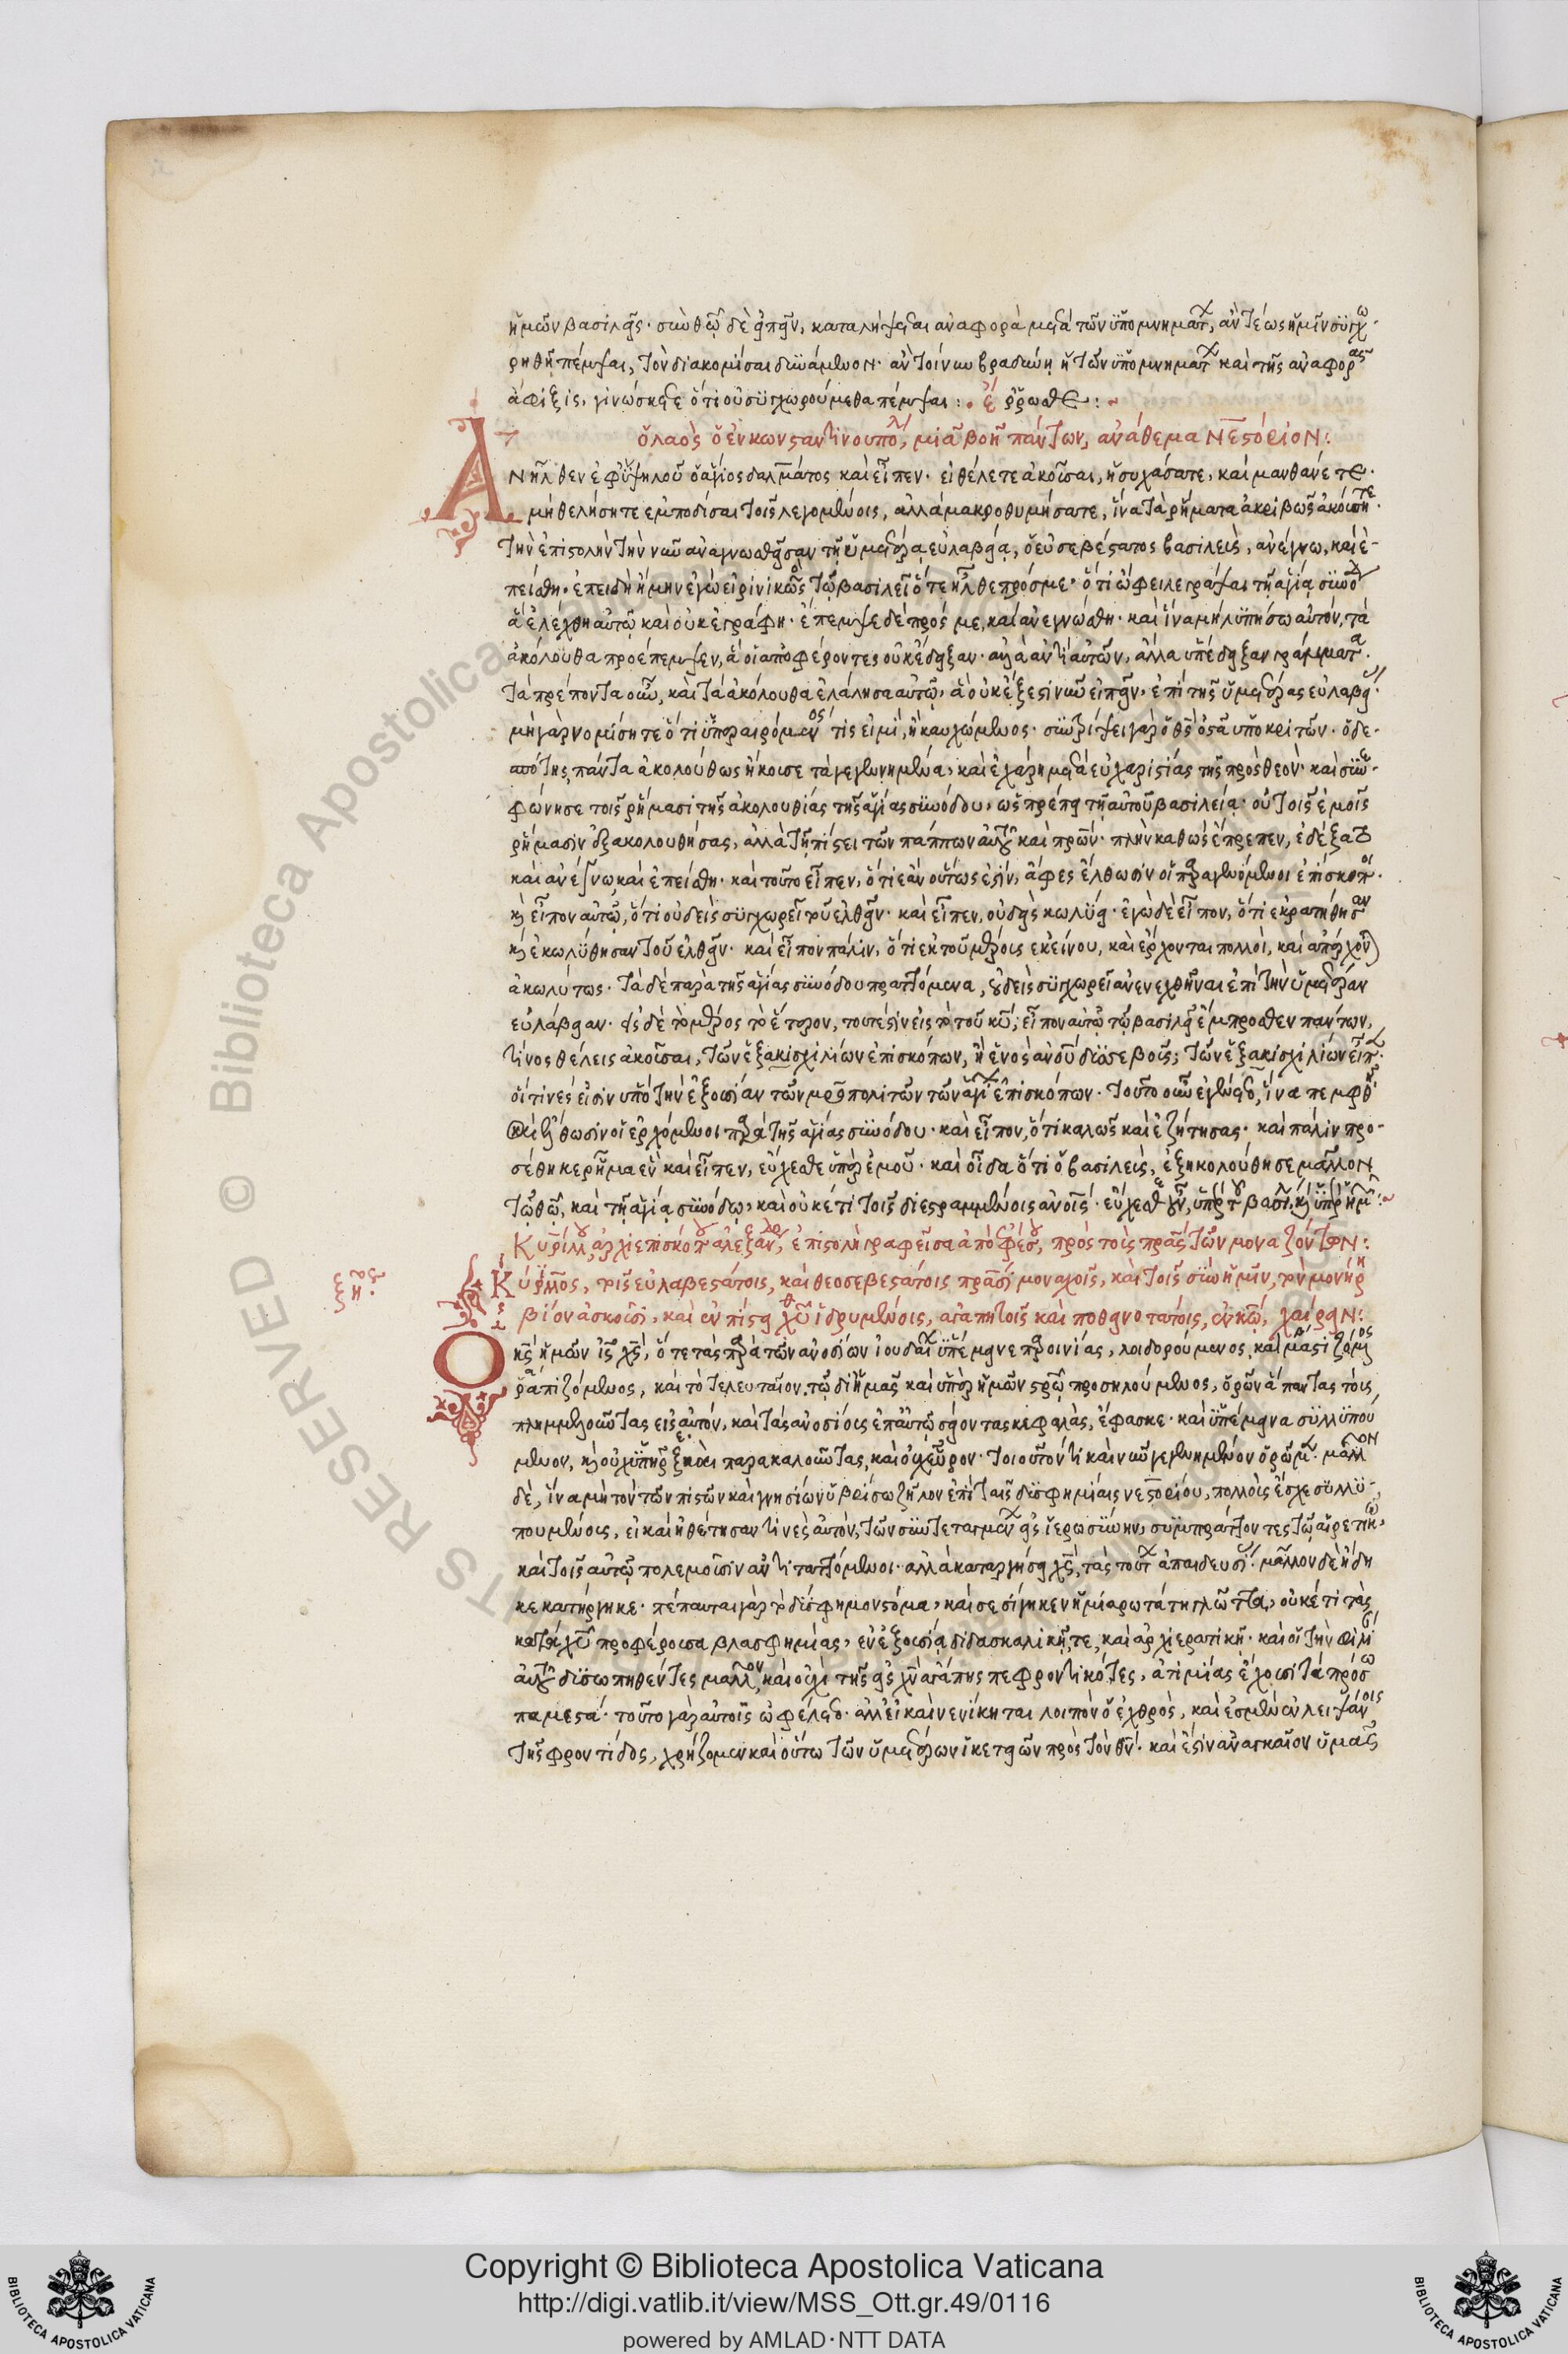 ἡμῶν βασιλεῖς· σὺν θεῶ δὲ εἰπεῖν, καταλήψεται ἀναφορὰ μετὰ τῶν ὑπομνημάτ, ἂν τέως ἡμῖν συγχω
ρηθῆ πέμψαι, τὸν διακομίσαι δυνάμενον· ἂν τοίνυν βραδύνη ἡ τῶν ὑπομνημάτ καὶ τῆς ἀναφορᾶς
ἄφιξις, γινώσκετε ὅτι οὐ συγχωρούμεθα πέμψαι: ἔρρωσθε:
ὁ λαὸς ὁ ἐν κωνσταντινουπόλ, μιᾶ βοῆ πάντων, ἀνάθεμα νεστόριον:
Ἀνῆλθεν ἐφ ὑψηλοῦ ὁ ἅγιος δαλμάτος καὶ εἶπεν· εἰ θέλετε ἀκοῦσαι, ἡσυχάσατε, καὶ μανθάνετε·
μὴ θελήσητε ἐμποδίσαι τοῖς λεγομένοις, ἀλλὰ μακροθυμήσατε, ἵνα τὰ ῥήματα ἀκριβῶς ἀκούσητε·
τὴν ἐπιστολὴν τὴν νῦν ἀναγνωσθεῖσαν τῆ ὑμετέρα εὐλαβεία, ὁ εὐσεβέστατος βασιλεὺς, ἀνέγνω, καὶ ἐ-
πείσθη· ἐπειδὴ ἤμην ἐγὼ εἰρηνικῶς τῶ βασιλεῖ ὅτε ἦλθε πρός με· ὅτι ὤφειλε γράψαι τῆ ἁγία συνόδ
ἃ ἐλέχθη αὐτῶ καὶ οὐκ ἐγράφη· ἔπεμψε δὲ πρός με, καὶ ἀνεγνώσθη· καὶ ἵνα μὴ λυπήσω αὐτὸν, τὰ
ἀκόλουθα προέπεμψεν, ἃ οἱ ἀποφέροντες οὐκ ἔδειξαν· αὐτὰ ἀντὶ αὐτῶν, ἀλλὰ ὑπέδειξαν γράμματα·
τὰ πρέποντα οὖν, καὶ τὰ ἀκόλουθα ἐλάλησα αὐτῶ, ἃ οὐκ ἔξεστι νῦν εἰπεῖν, ἐπὶ τῆς ὑμετέρας εὐλαβεί·
μὴ γὰρ νομίσητε ὅτι ὑπεραιρόμενος τίς εἰμὶ, ἢ καυχώμενος· συντρίψει γὰρ ὁ θς ὀστᾶ ὑποκριτῶν· ὁ δε-
σπότης, πάντα ἀκολούθως ἤκουσε τὰ γεγενημένα, καὶ ἐχάρη μετὰ εὐχαριστίας τῆς πρὸς θεὸν· καὶ συνε-
φώνησε τοῖς ῥήμασι τῆς ἀκολουθίας τῆς ἁγίας συνόδου, ὡς πρέπει τῆ αὐτοῦ βασιλεία· οὐ τοῖς ἐμοῖς
ῥήμασιν ἐξακολουθήσας, ἀλλὰ τῆ πίστει τῶν πάππων αὐτοῦ καὶ πρων· πλὴν καθὼς ἔπρεπεν, ἐδέξατο
καὶ ἀνέγνω, καὶ ἐπείσθη· καὶ τοῦτο εἶπεν, ὅτι ἐὰν οὕτως ἐστὶν, ἄφες ἔλθωσιν οἱ παραγενόμενοι ἐπίσκοποι·
καὶ εἶπον αὐτῶ, ὅτι οὐδεὶς συγχωρεῖ τοῦ ἐλθεῖν· καὶ εἶπεν, οὐδεὶς κωλύει· ἐγὼ δὲ εἶπον, ὅτι ἐκρατήθησαν
καὶ ἐκωλύθησαν τοῦ ἐλθεῖν· καὶ εἶπον πάλιν, ὅτι ἐκ τοῦ μέρους ἐκείνου, καὶ ἔρχονται πολλοὶ, καὶ ἀπέρχονται
ἀκωλύτως· τὰ δὲ παρὰ τῆς ἁγίας συνόδου πραττόμενα, οὐδεὶς συγχωρεῖ ἀνενεχθῆναι ἐπὶ τὴν ὑμετέραν
εὐλάβειαν· εἰς δὲ τὸ μέρος τὸ ἕτερον, τουτέστιν εἰς τὸ τοῦ κυ, εἶπον αὐτῶ τῶ βασιλεῖ ἔμπροσθεν πάντων,
τίνος θέλεις ἀκοῦσαι, τῶν ἑξακισχιλίων ἐπισκόπων, ἢ ἑνὸς ἀνου δυσσεβοῦς; τῶν ἑξακισχιλίων εἶπον·
οἵτινές εἰσιν ὑπὸ τὴν ἐξουσίαν τῶν μροπολιτῶν τῶν ἁγίων ἐπισκόπων· τοῦτο οὖν ἐγένετο, ἵνα πεμφθῆ
καὶ ἔλθωσιν οἱ ἐρχόμενοι παρὰ τῆς ἁγίας συνόδου· καὶ εἶπον, ὅτι καλῶς καὶ ἐζήτησας· καὶ πάλιν προ-
σέθηκε ῥῆμα ἓν καὶ εἶπεν, εὔχεσθε ὑπὲρ ἐμοῦ· καὶ οἶδα ὅτι ὁ βασιλεὺς, ἐξηκολούθησε μᾶλλον
τῶ θω, καὶ τῆ ἁγία συνόδω, καὶ οὐκέτι τοῖς διεστραμμένοις ἀνοις· εὔχεσθε οὖν, ὑπὲρ τοῦ βασιλ, καὶ ὑπὲρ ἡμῶν:
Κυρίλλου ἀρχιεπισκόπου ἀλεξανδρ, ἐπιστολὴ γραφεῖσα ἀπὸ ἐφέσου, πρὸς τοὺς πρας τῶν μοναζόντων:
Κύριλλος, τοῖς εὐλαβεστάτοις, καὶ θεοσεβεστάτοις πράσι μοναχοῖς, καὶ τοῖς σὺν ἡμῖν, τὸν μονήρη
βίον ἀσκοῦσι, καὶ ἐν πίστει χυ ἱδρυμένοις, ἀγαπητοῖς καὶ ποθεινοτάτοις, ἐν κω, χαίρειν:
Ὁ κς ἡμῶν ις χς, ὅτε τὰς παρὰ τῶν ἀνοσίων ἰουδαίων ὑπέμεινε παροινίας, λοιδορούμενος, καὶ μαστιζόμενος
ῥαπιζόμενος, καὶ τὸ τελευταῖον, τῶ δι ἡμᾶς καὶ ὑπὲρ ἡμῶν στρω προσηλούμενος, ὁρῶν ἅπαντας τοὺς
πλημμελοῦντας εἰς αὐτὸν, καὶ τὰς ἀνοσίους ἐπ αὐτῶ σείοντας κεφαλὰς, ἔφασκε· καὶ ὑπέμεινα συλλυπού
μενον, καὶ οὐχ ὑπῆρξε καὶ παρακαλοῦντας, καὶ οὐχ εὗρον· τοιοῦτόν τι καὶ νῦν γεγενημένον ὁρῶμεν· μᾶλλον
δὲ, ἵνα μὴ τὸν τῶν πιστῶν καὶ γνησίων ὑβρίσω ζῆλον ἐπὶ ταῖς δυσφημίαις νεστορίου, πολλοὺς ἔσχε συλλυ-
πουμένους, εἰ καὶ ἠθέτησαν τινὲς αὐτὸν, τῶν συντεταγμένων εἰς ἱερωσύνην, συμπράττοντες τῶ αἱρετικῶ,
καὶ τοῖς αὐτῶ πολεμοῦσιν ἀντιταττόμενοι· ἀλλὰ καταργήσει χς, τὰς τούτων ἀπαιδευσί· μᾶλλον δὲ ἤδη
κεκατήργηκε· πέπαυται γὰρ τὸ δύσφημον στόμα, καὶ σεσίγηκεν ἡ μιαρωτάτη γλῶττα, οὐκέτι τὰς
κατὰ χυ προφέρουσα βλασφημίας, ἐν ἐξουσία διδασκαλικῆ, τε, καὶ ἀρχιερατικῆ· καὶ οἱ τὴν φιλί
αὐτοῦ δυσωπηθέντες μᾶλλον, καὶ οὐχὶ τῆς εἰς χν ἀγάπης πεφροντικότες, ἀτιμίας ἔχουσι τὰ πρόσω
πα μεστά· τοῦτο γὰρ αὐτοῖς ὠφέλετο· ἀλλ εἰ καὶ νενίκηται λοιπὸν ὁ ἐχθρὸς, καὶ ἐσμὲν ἐν λειψάνοις
τῆς φροντίδος, χρήζομεν καὶ οὕτω τῶν ὑμετέρων ἱκετειῶν πρὸς τὸν θν· καὶ ἔστιν ἀναγκαῖον ὑμᾶς
Copyright © Biblioteca Apostolica Vaticana
http://digi.vatlib.it/view/MSS_Ott.gr.49/0116
powered by AMLAD·NTT DATA
BIBLIOTECA APOSTOLICA VATICANA
BIBLIOTECA APOSTOLICA VATICANA
RESERVED © Biblioteca Apostolica